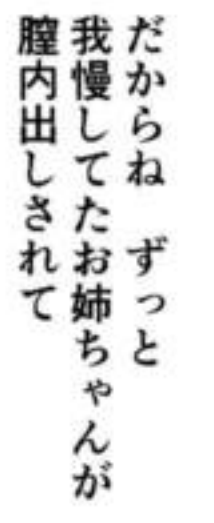 だからね　ずっと
我慢してたお姉ちゃんが
膣内出しされて